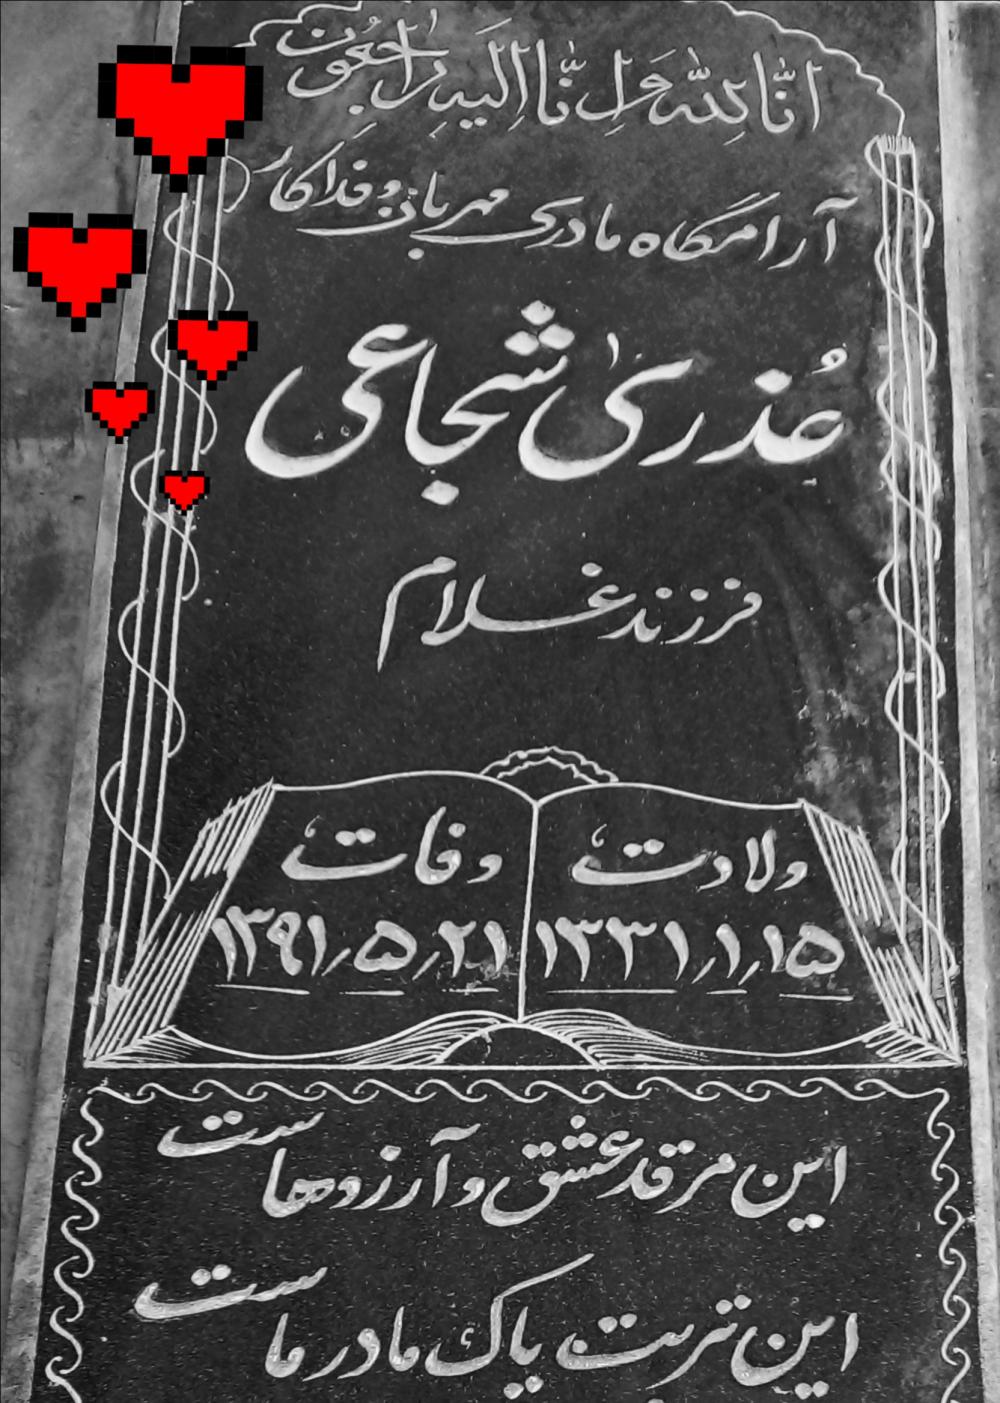 انّا لله و انّا الیه راجعون
آرامگاه مادری مهربان و فداکار
عُذریٰ شجاعی
فرزند غلام
ولادت
۱۳۳۱/۱/۱۵
وفات
۱۳۹۱/۵/۲۱
این مرقد عشق و آرزوهاست
این تربت پاک مادر ماست